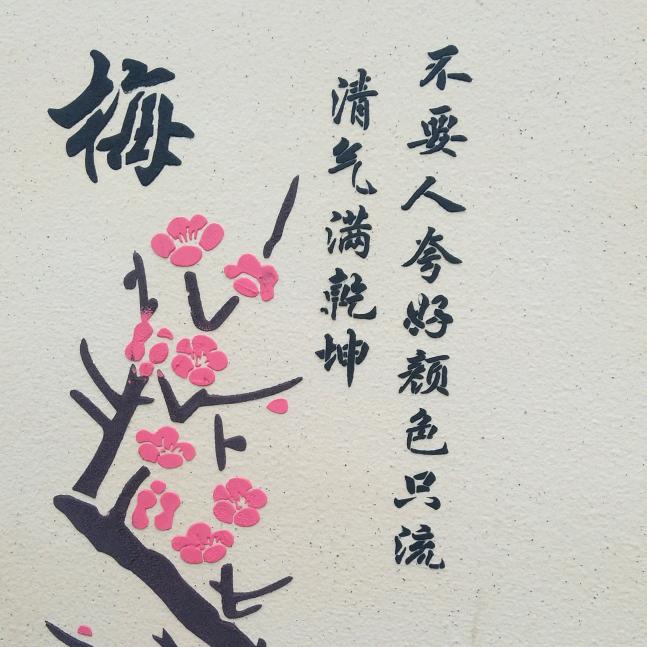 梅
不要人夸好颜色只流
清气满乾坤